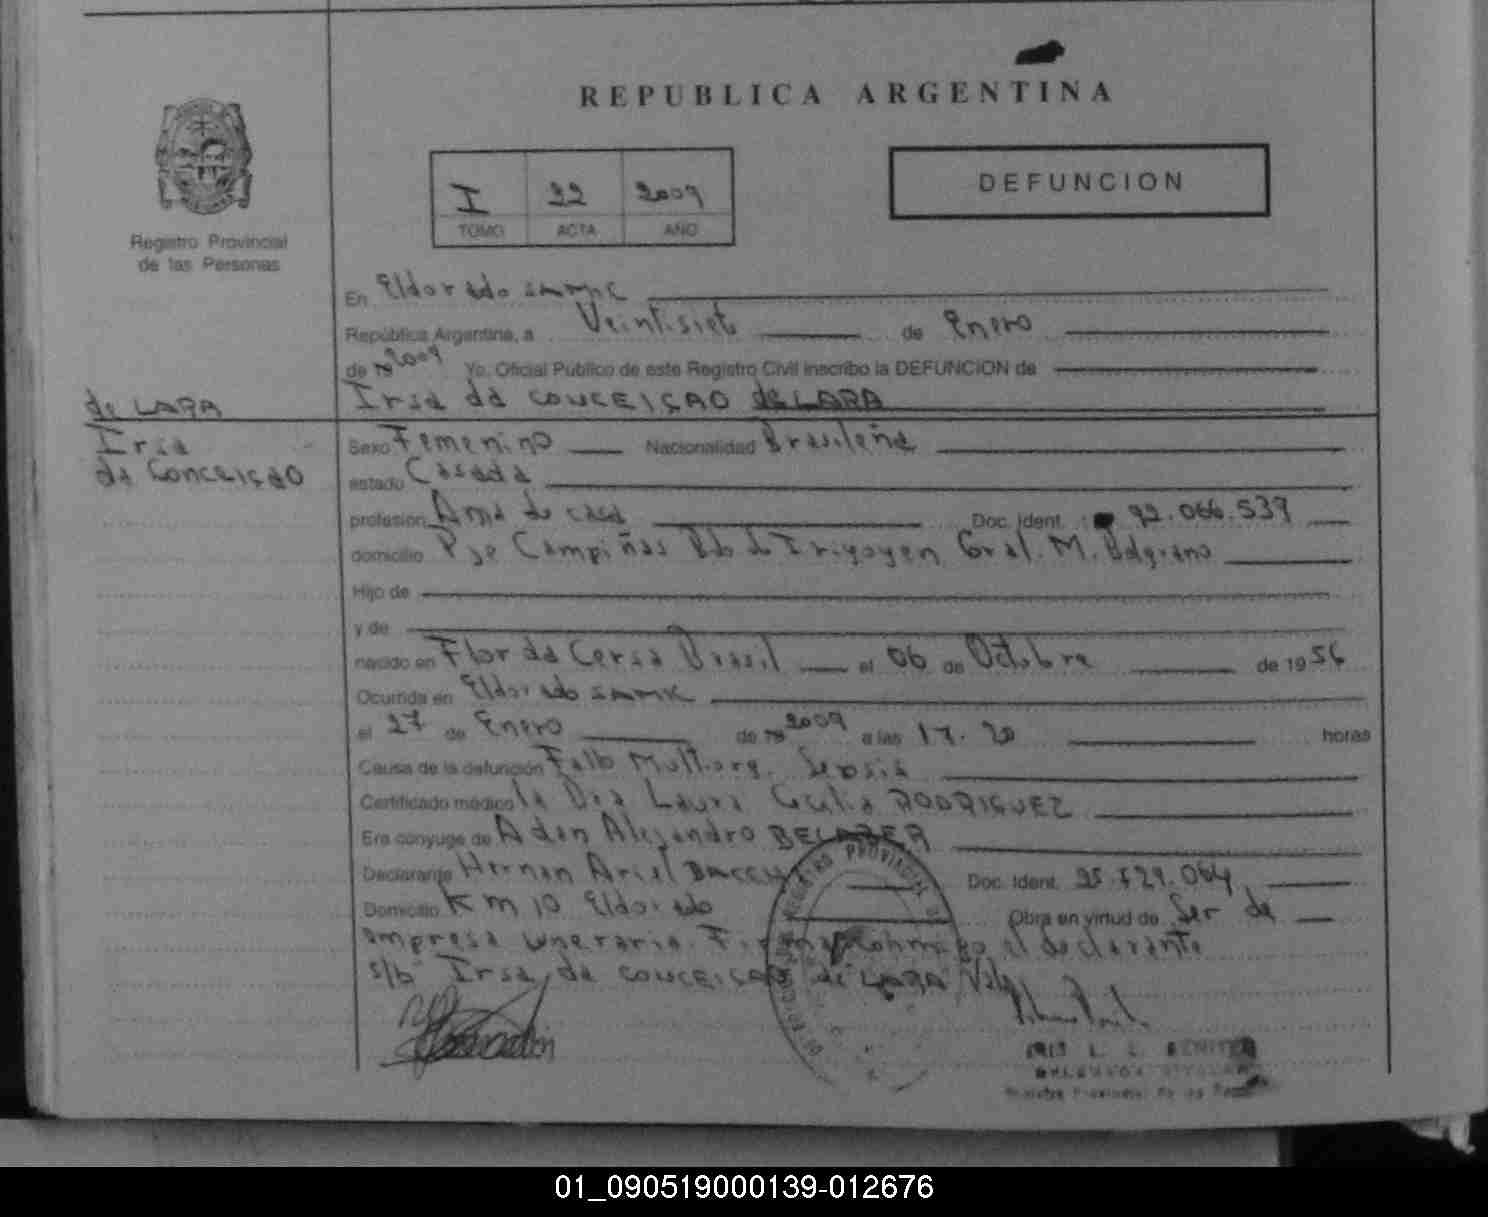 REPUBLICA ARGENTINA
I 22 2009
TOMO ACTA AÑO
DEFUNCION
Registro Provincial
de las Personas
En Eldorado SAMIC
República Argentina, a Veintisiete de Enero
de 19 2009 Yo, Oficial Público de este Registro Civil inscribo la DEFUNCION de
Irsa da CONCEIÇAO de LARA
de LARA
Irsa
da CONCEIÇAO
Sexo Femenino Nacionalidad Brasileña
estado Casada
profesion Ama de casa Doc. Ident. 92.066.539
domicilio Pje Campiñas Bdo de Irigoyen Gral. M. Belgrano
Hijo de
y de
nacido en Flor da Cersa Brasil el 06 de Octubre de 1956
Ocurrida en Eldorado SAMIC
el 27 de Enero de 19 2009 a las 17.20 horas
Causa de la defunción Fallo Multiorg. Sepsis
Certificado médico la Dra Laura Cecilia RODRIGUEZ
Era cónyuge de Adan Alejandro
Declarante Hernan Ariel Doc. Ident. 25.529.064
Domicilio Km 10 Eldorado Obra en virtud de Ser de
empresa uneraria. Firma conmigo el declarante
s/b Irsa da CONCEIÇAO de LARA Vale
REGISTRO PROVINCIAL DE
L. BENITEZ
Registro Provincial de las
01_090519000139-012676